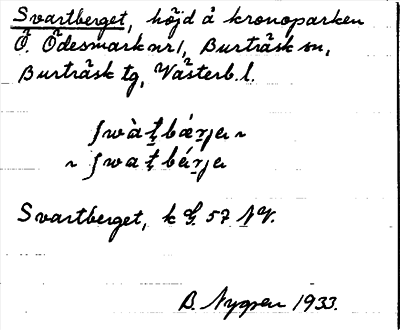 Svartberget, höjd å kronoparken
Ö. Ödesmark nr 1, Burträsk sn,
Burträsk tg, Västerb. l.
Svartberget, k G. 57 NV.
B. Nygren 1933.